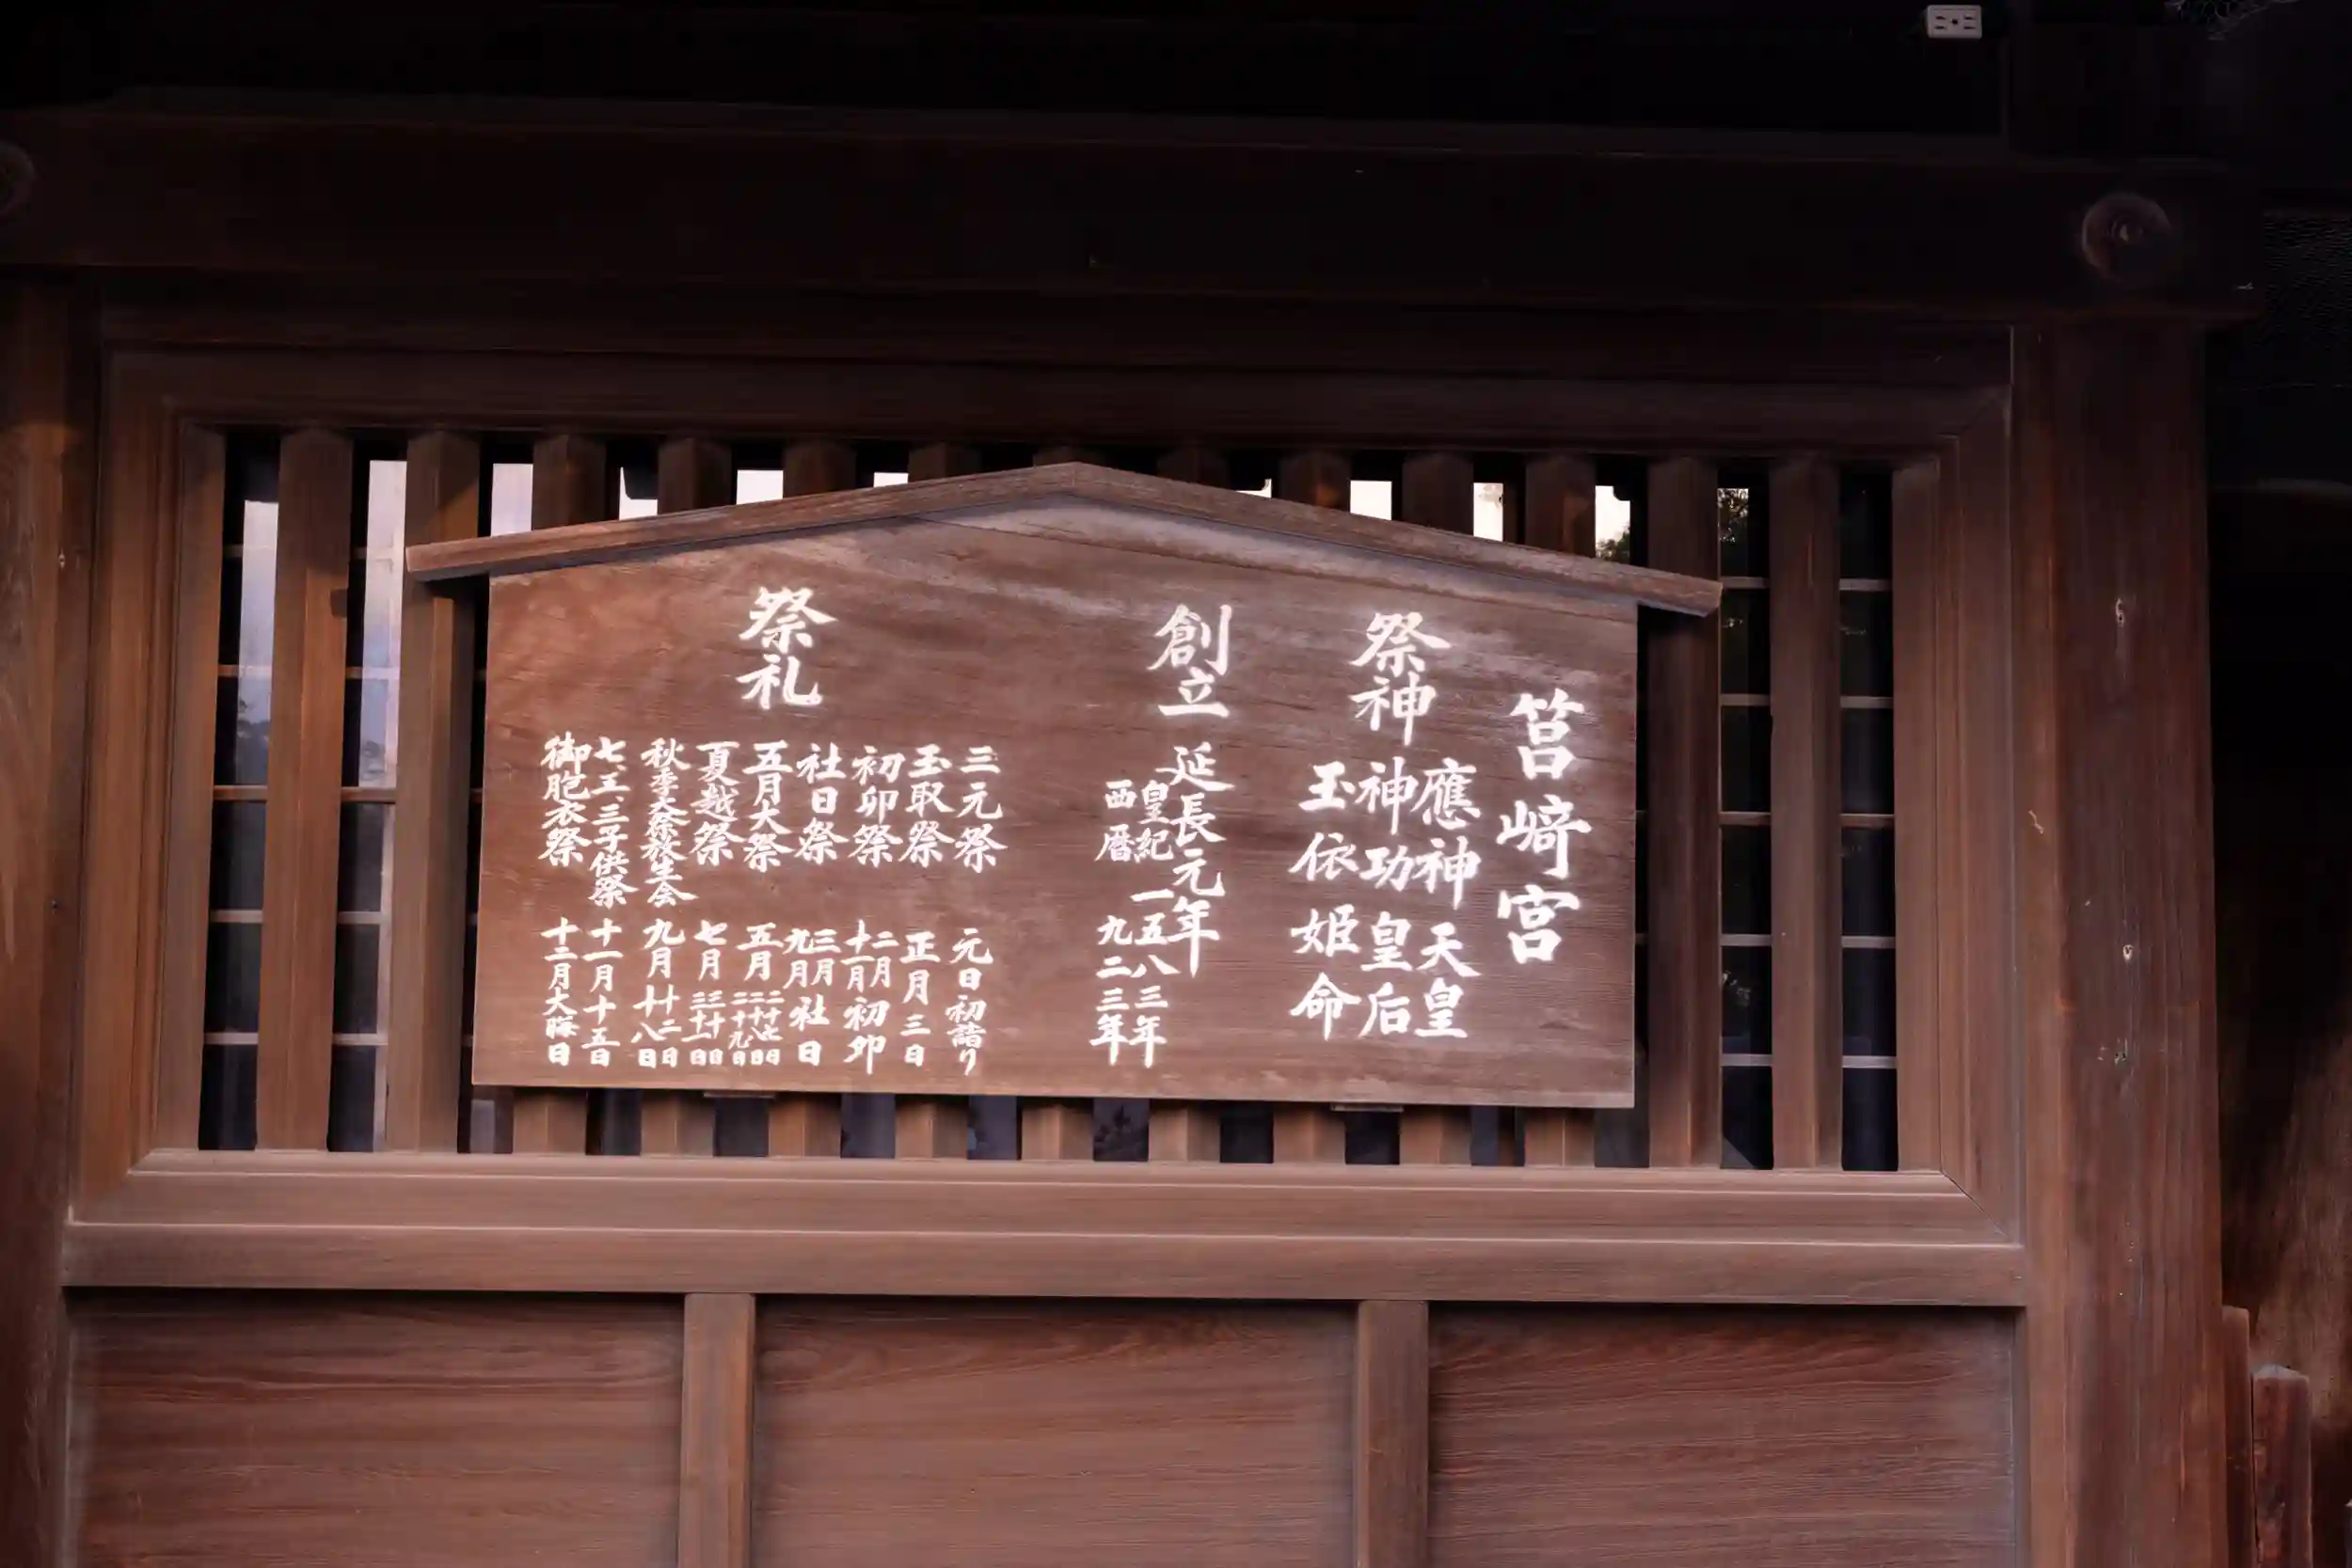 筥崎宮
祭神
應神天皇
神功皇后
玉依姫命
創立
延長元年
皇紀 一五八三年
西暦 九二三年
祭礼
三元祭 元日初詣り
玉取祭 正月三日
初卯祭 二月十一月初卯
社日祭 三月九月社日
五月大祭 五月
夏越祭 七月
秋季大祭放生会 九月 十二日 十八日
七、五、三子供祭 十一月十五日
御胞衣祭 十二月大晦日